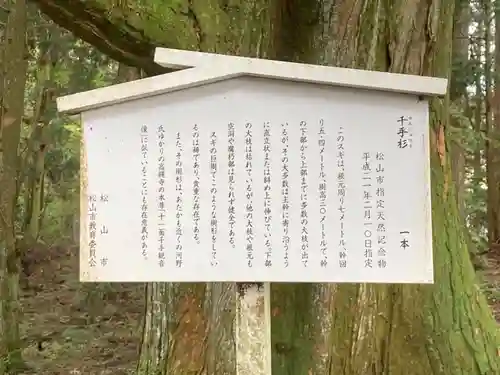 千手杉
せんじゅすぎ
一本
松山市指定天然記念物
平成二一年二月一〇日指定
このスギは、根元周り七メートル、幹回
り五・四メートル、樹高三〇メートルで、幹
の下部から上部まで多数の大枝が出て
いるが、その大多数は主幹に寄り沿うよう
に直立状または斜め上に伸びている。下部
の大枝は枯れているが、他の大枝や根元も
空洞や腐朽部は見られず健全である。
スギの巨樹で、このような樹形をしてい
るのは稀であり、貴重な存在である。
また、その樹形は、あたかも近くの河野
氏ゆかりの高縄寺の本尊「十一面千手観音
像」に似ていることにも存在意義がある。
松山市
松山市教育委員会